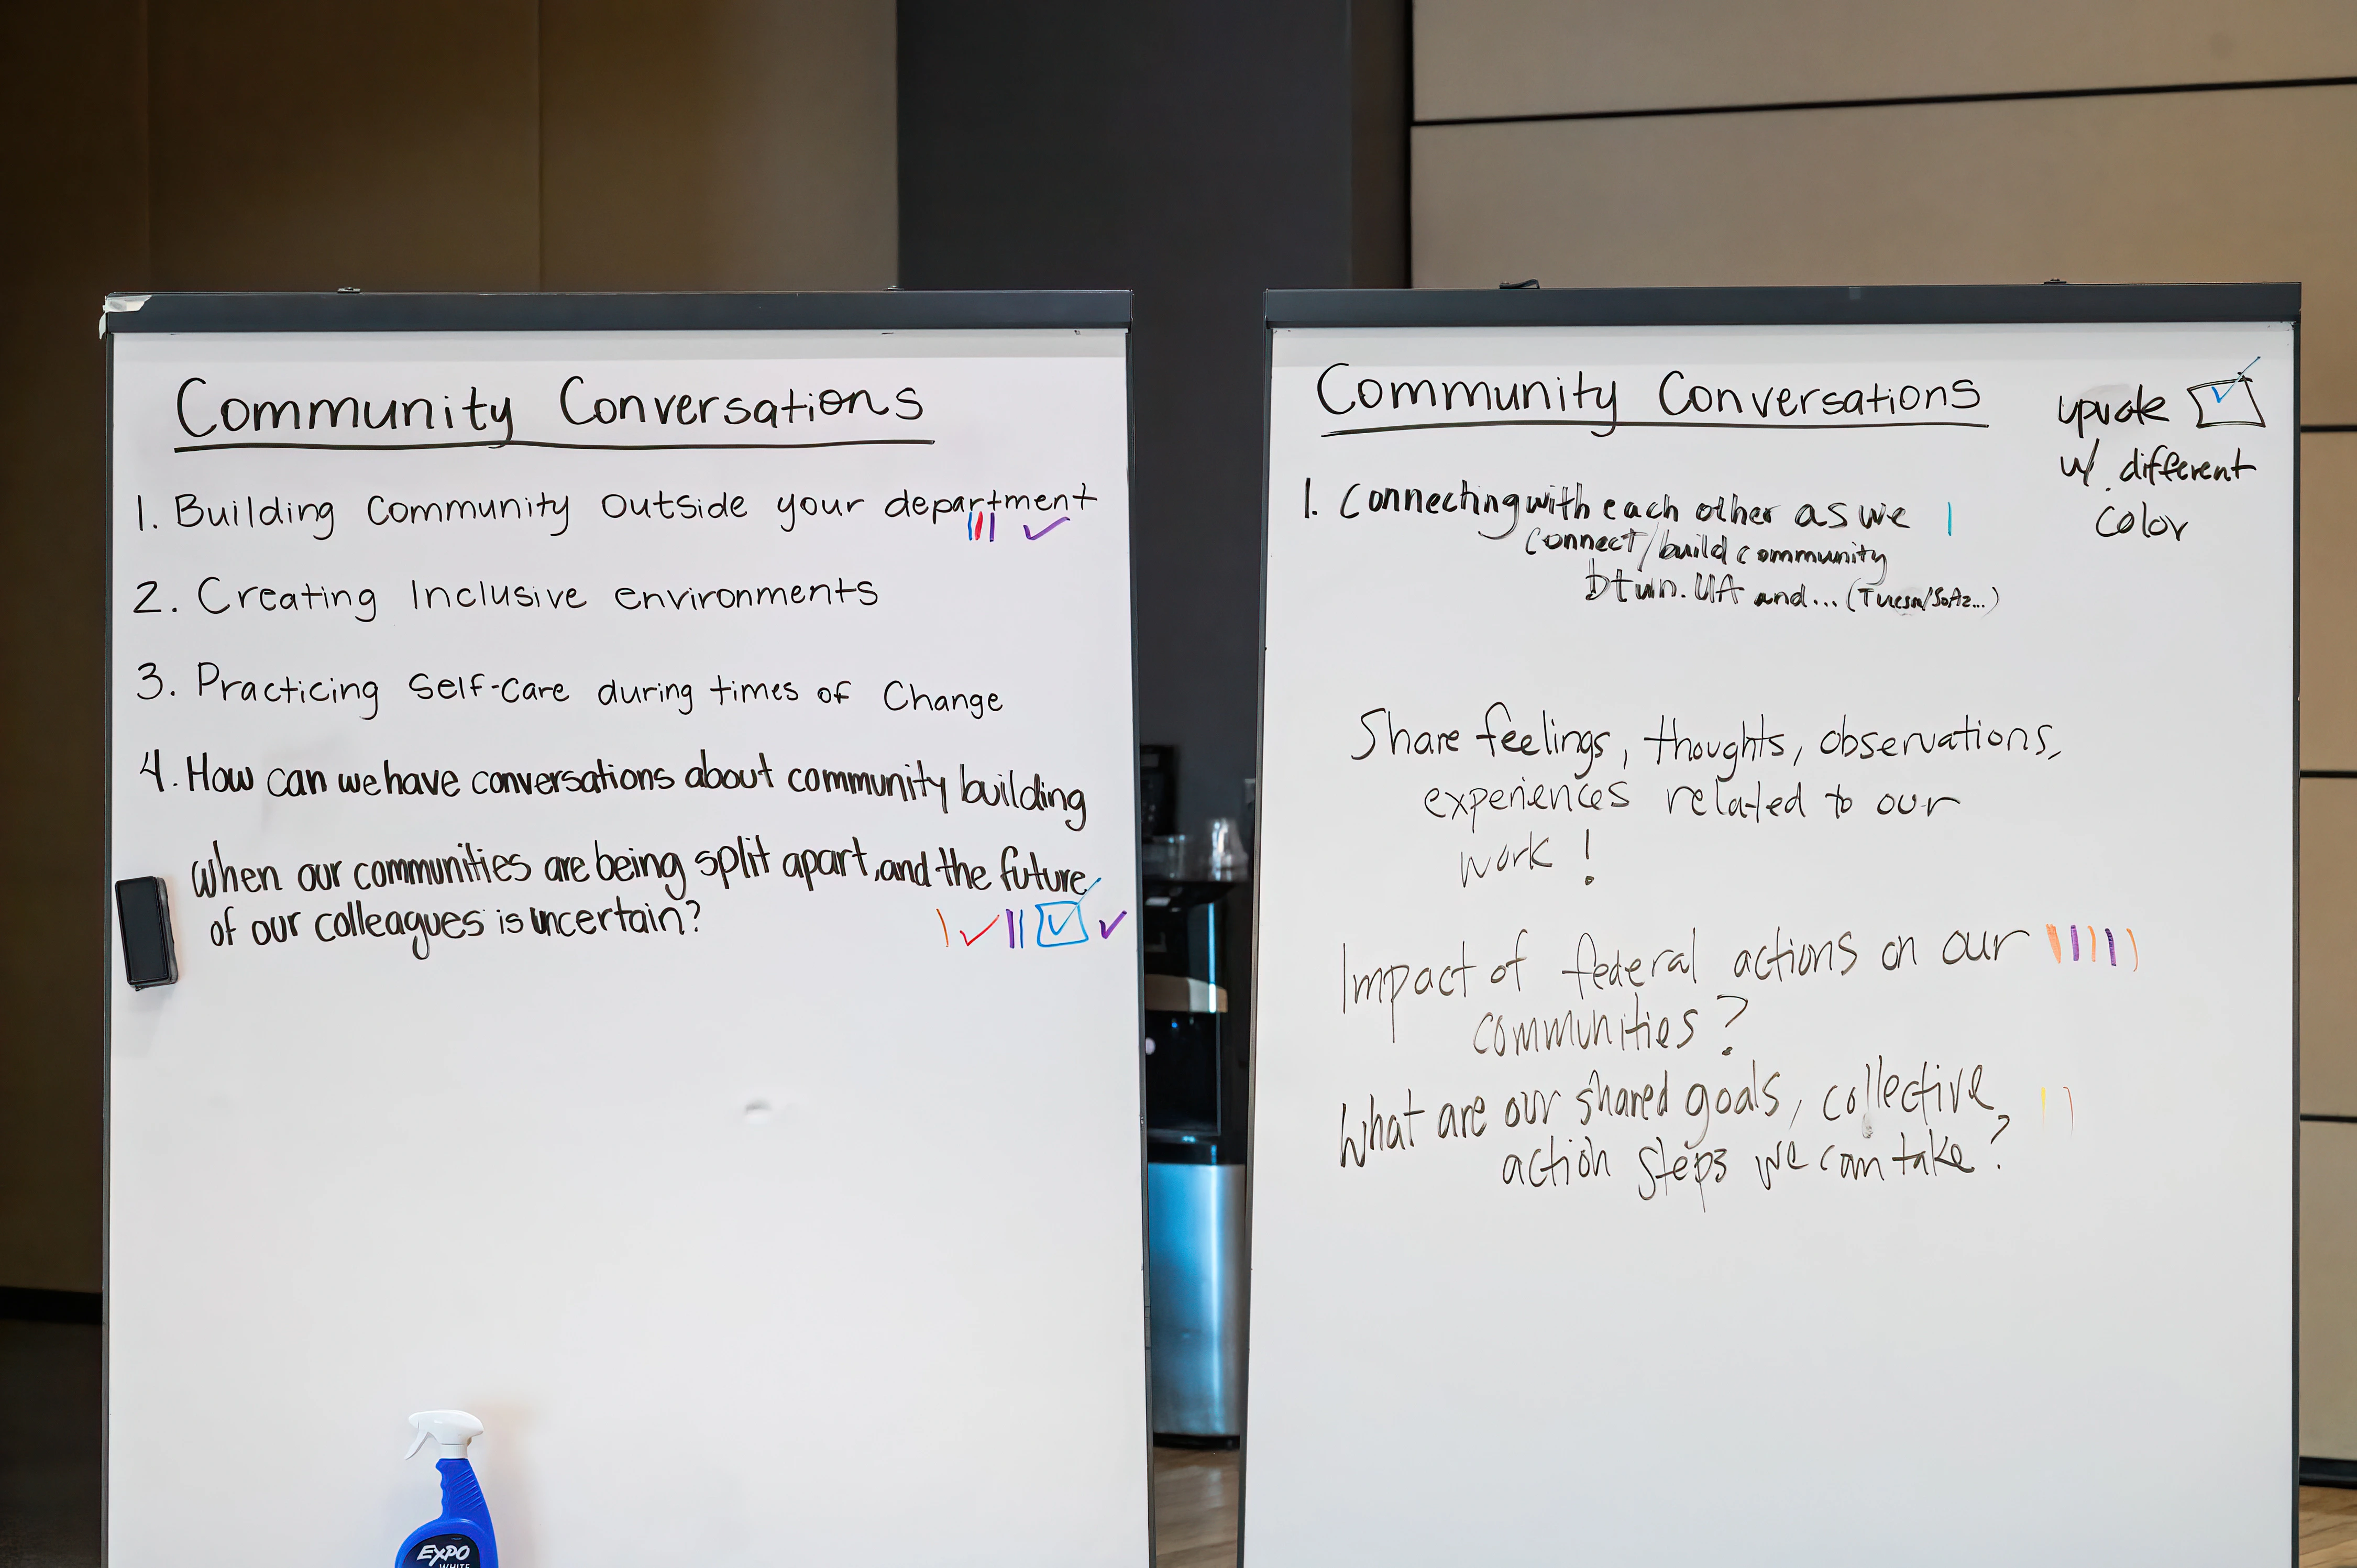 Community Conversations
1. Building Community Outside your department
2. Creating Inclusive environments
3. Practicing Self-Care during times of Change
4. How can we have conversations about community building
when our communities are being split apart, and the future
of our colleagues is uncertain?
EXPO
WHITE
Community Conversations
upvote
w/ different
color
1. Connecting with each other as we
connect/build community
btwn. UA and... (Tucson/SoAz...)
Share feelings, thoughts, observations,
experiences related to our
work!
Impact of federal actions on our
communities?
What are our shared goals, collective
action steps we can take?